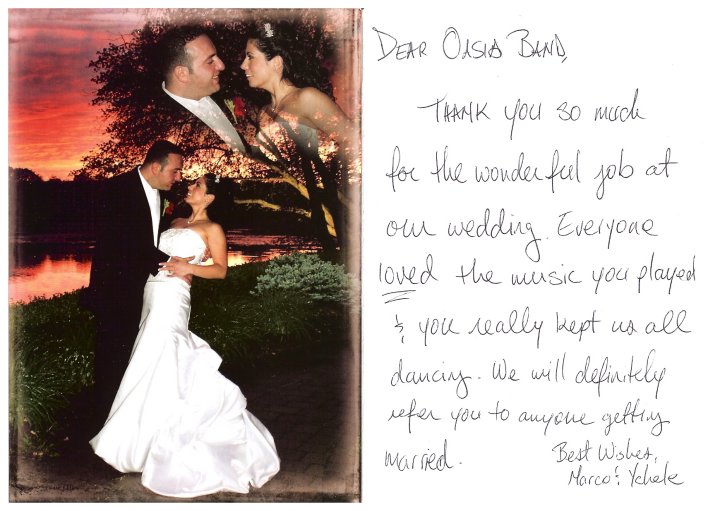 DEAR OASIS BAND,
THANK you so much
for the wonderful job at
our wedding. Everyone
loved the music you played
& you really kept us all
dancing. We will definitely
refer you to anyone getting
married.
Best Wishes,
Marco &